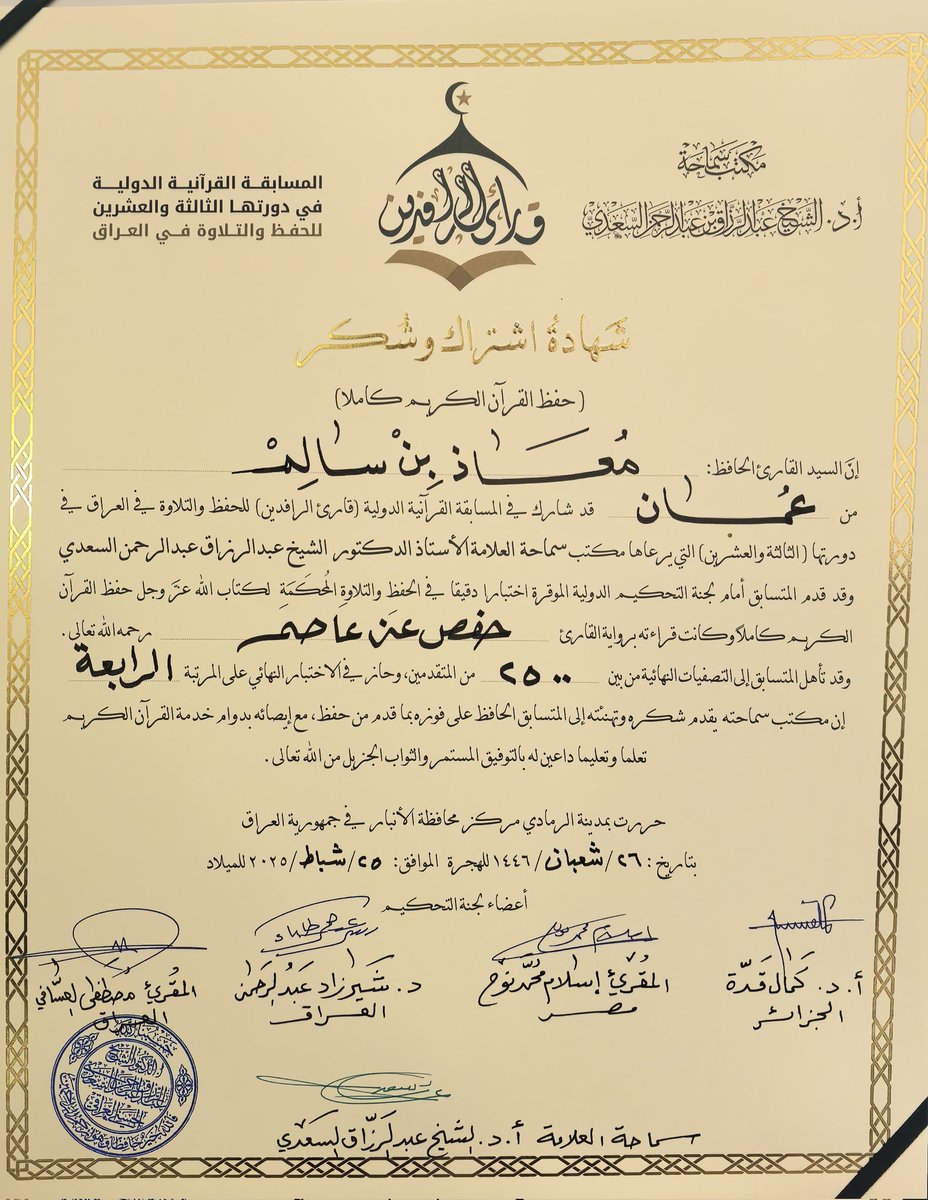 مكتب سماحة
أ.د. الشيخ عبدالرزاق بن عبدالرحمن السعدي
قارئ الرافدين
المسابقة القرآنية الدولية
في دورتها الثالثة والعشرين
للحفظ والتلاوة في العراق
شهادة اشتراك وشكر
(حفظ القرآن الكريم كاملا)
إنّ السيد القارئ الحافظ: مُعَاذ بِنْ سالِمْ
من عُمان قد شارك في المسابقة القرآنية الدولية (قارئ الرافدين) للحفظ والتلاوة في العراق في
دورتها (الثالثة والعشرين) التي يرعاها مكتب سماحة العلامة الأستاذ الدكتور الشيخ عبدالرزاق عبدالرحمن السعدي
وقد قدم المتسابق أمام لجنة التحكيم الدولية الموقرة اختبارا دقيقا في الحفظ والتلاوةِ المُحكَمَةِ لكتاب الله عزّ وجل حفظ القرآن
الكريم كاملاً وكانت قراءته برواية القارئ حفص عن عاصم رحمه الله تعالى.
وقد تأهل المتسابق إلى التصفيات النهائية من بين ٢٥٠٠ من المتقدمين، وحاز في الاختبار النهائي على المرتبة الرابعة
إن مكتب سماحته يقدم شكره وتهنئته إلى المتسابق الحافظ على فوزه بما قدم من حفظ، مع إيصائه بدوام خدمة القرآن الكريم
تعلما وتعليما داعين له بالتوفيق المستمر والثواب الجزيل من الله تعالى.
حررت بمدينة الرمادي مركز محافظة الأنبار في جمهورية العراق
بتاريخ: ٢٦/شعبان/١٤٤٦ للهجرة الموافق: ٢٥/شباط/٢٠٢٥ للميلاد
أعضاء لجنة التحكيم
أ.د. كمال قدّة
الجزائر
المقرئ إسلام محمّد نوح
مصر
د. شيرزاد عبدالرحمن
العراق
المقرئ مصطفى العسّافي
العراق
سماحة العلامة أ.د. الشيخ عبدالرزّاق السعدي